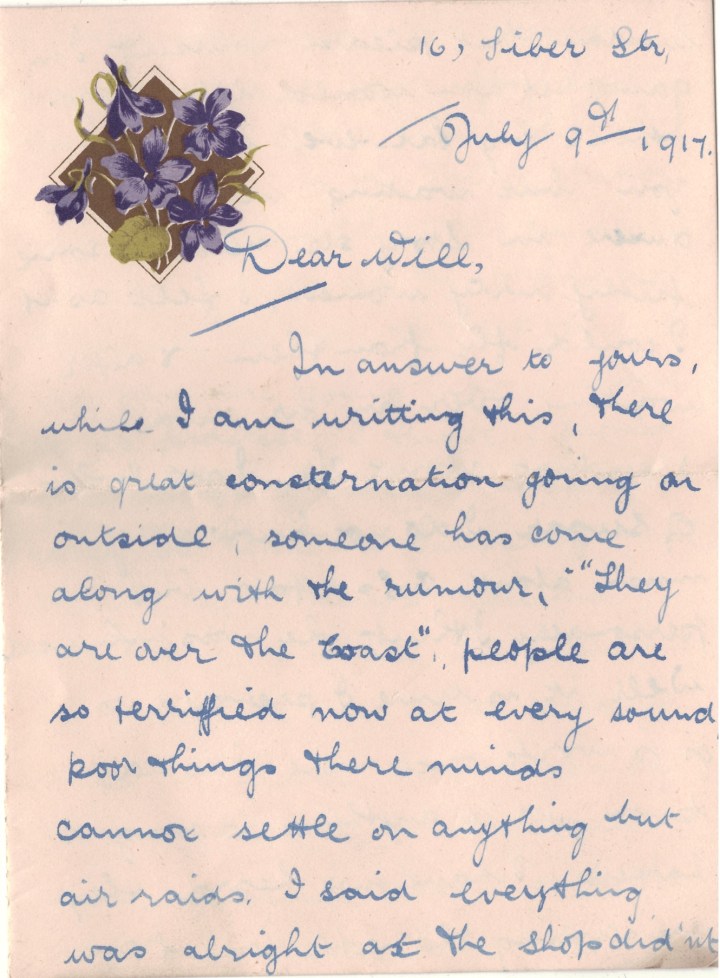 16, Siber Str,
July 9th, 1917.
Dear Will,
In answer to yours,
while I am writting this, there
is great consternation going on
outside, someone has come
along with the rumour, ""They
are over the Coast", people are
so terrified now at every sound
poor things there minds
cannot settle on anything but
air raids. I said everything
was alright at the shop did'nt